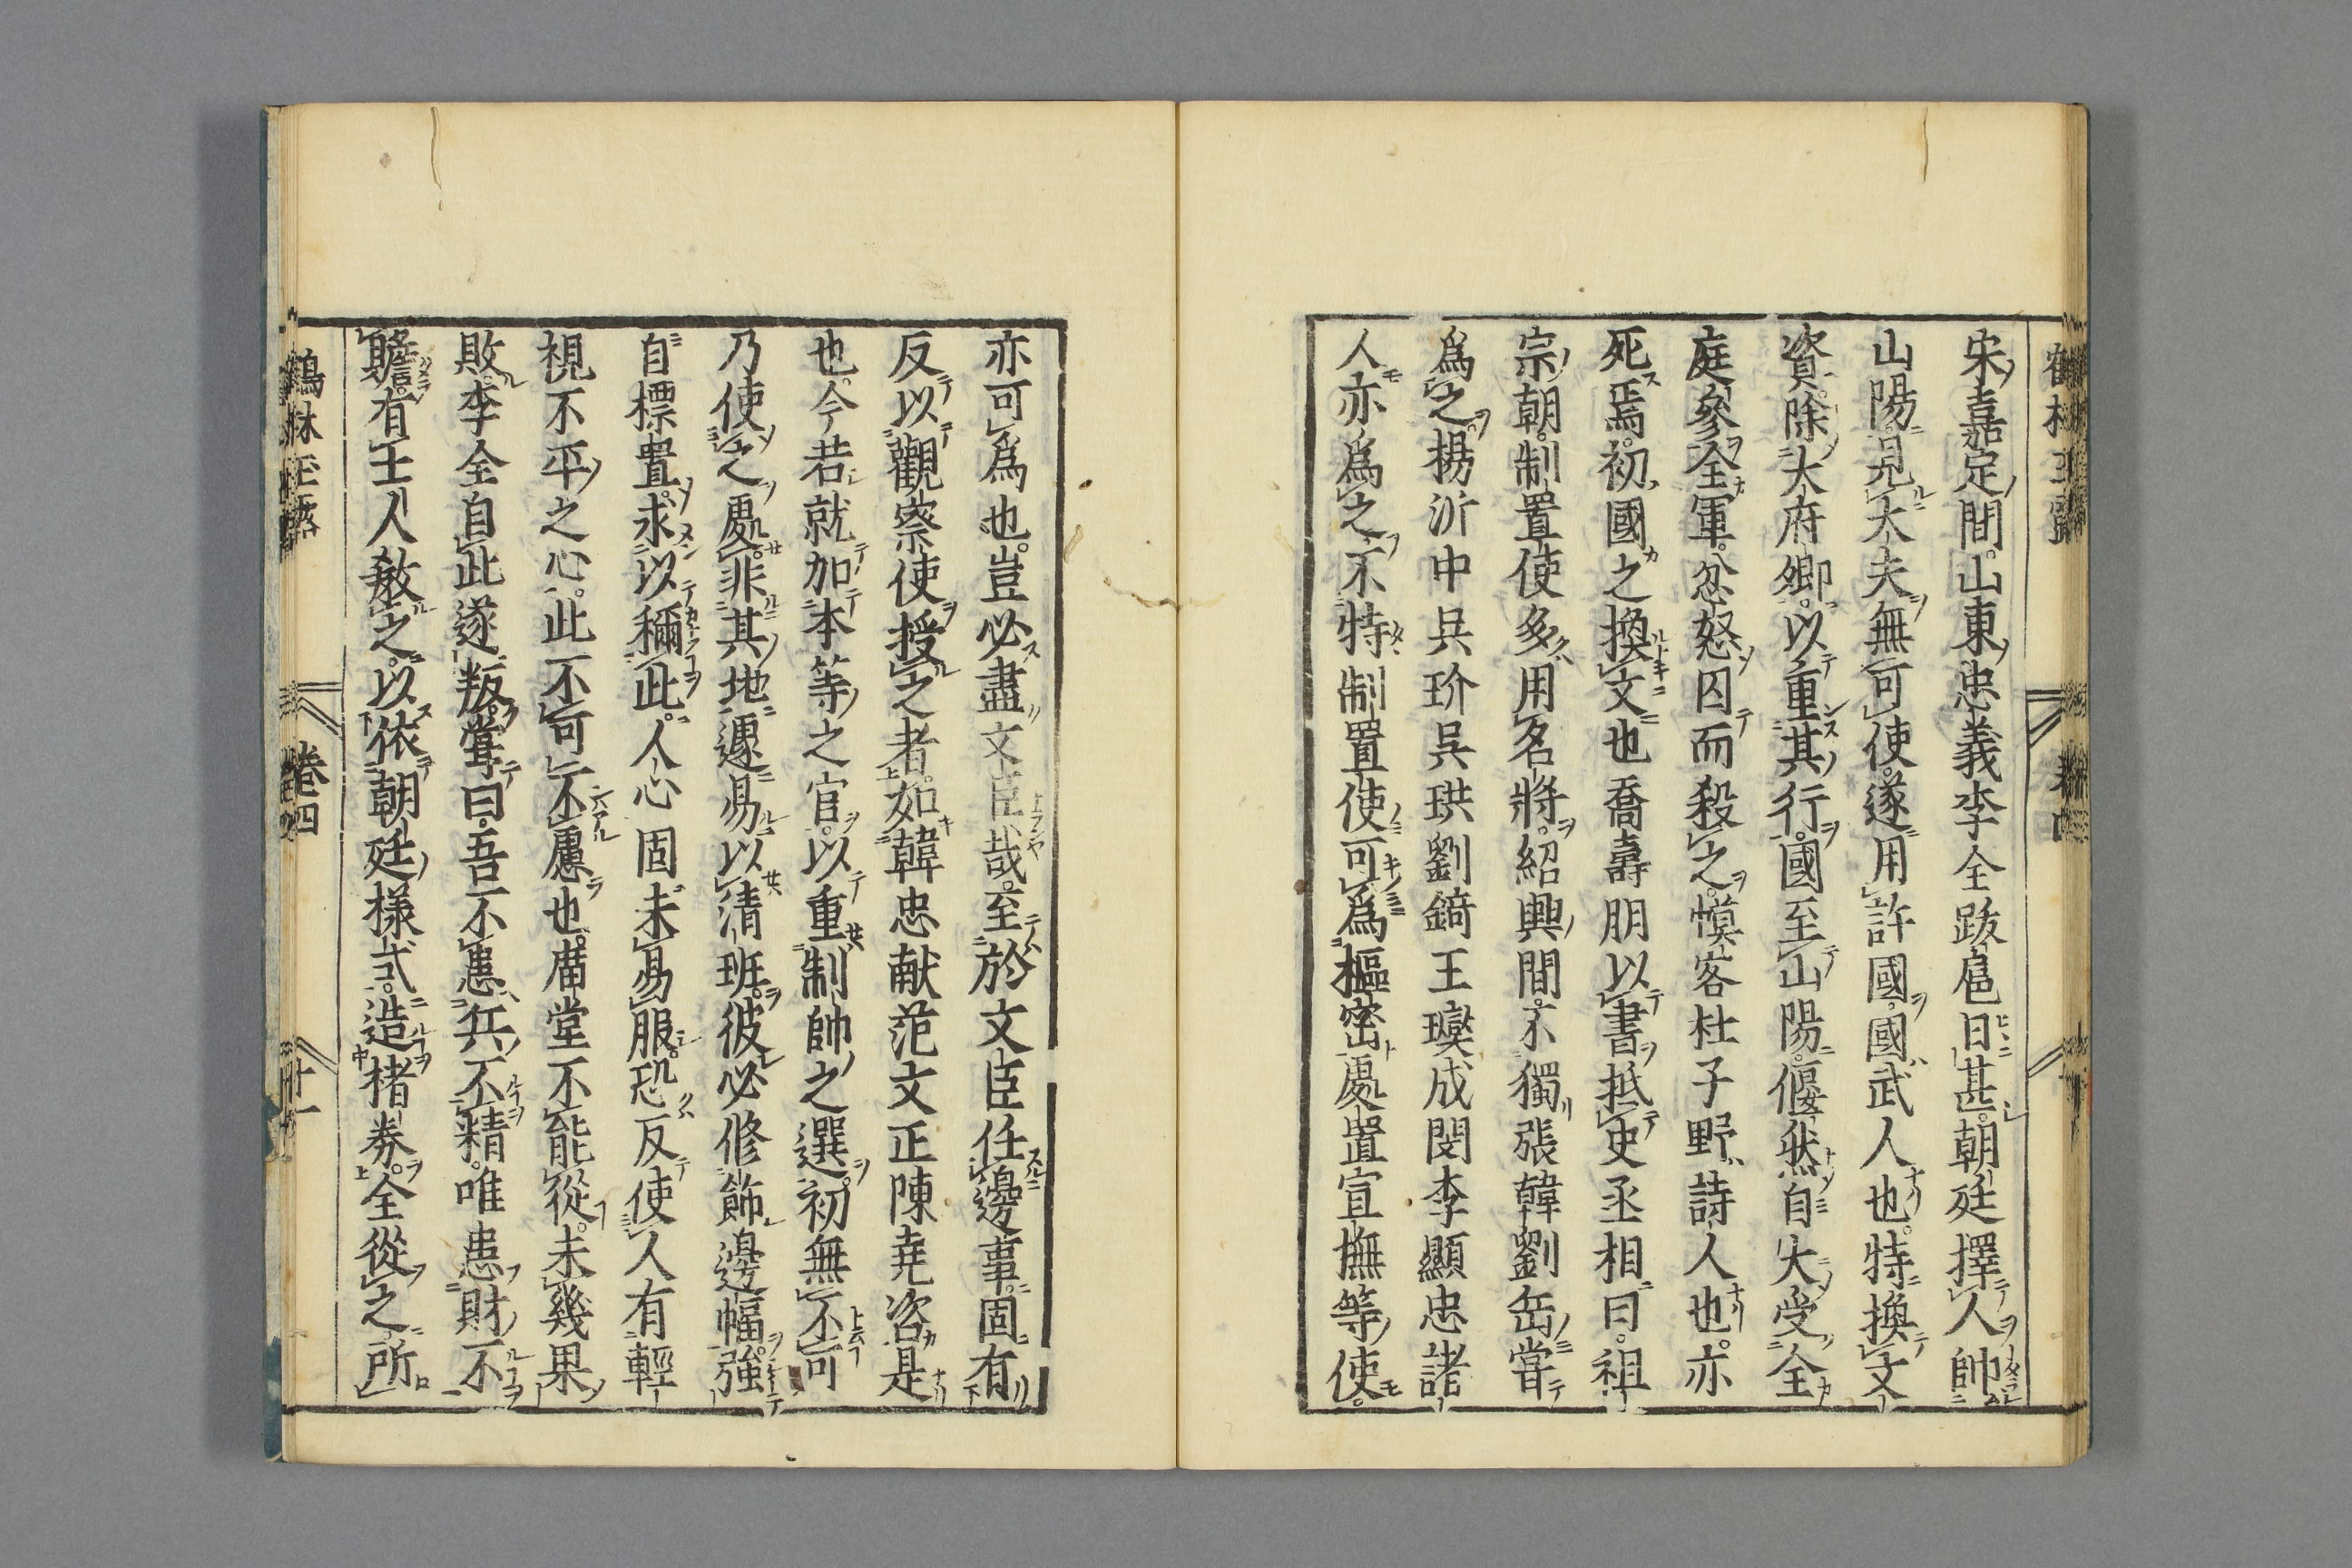 宋嘉定間山東忠義李全跋扈日甚朝廷擇人帥
山陽見大夫無可使遂用許國國武人也特換文
資除大府卿以重其行國至山陽偃然自大受全
庭參全軍忿怒囚而殺之幙客杜子野詩人也亦
死焉初國之換文也喬壽朋以書抵史丞相曰祖
宗朝制置使多用名將紹興間不獨張韓劉岳嘗
爲之楊沂中吳玠吳珙劉錡王𤫉成閔李顯忠諸
人亦爲之不特制置使可爲樞密處置宣撫等使
亦可爲也豈必盡文臣哉至於文臣任邊事固有
反以觀察使授之者如韓忠献范文正陳堯咨是
也今若就加本等之官以重制帥之選初無不可
乃使之處非其地遽易以清班彼必修飾邊幅強
自標置求以稱此人心固未易服恐反使人有輕
視不平之心此不可不慮也庿堂不能從未幾果
敗李全自此遂叛嘗曰吾不患兵不精唯患財不
贍有士人敎之以依朝廷樣式造楮券全從之所
鶴林玉露 卷四 十一